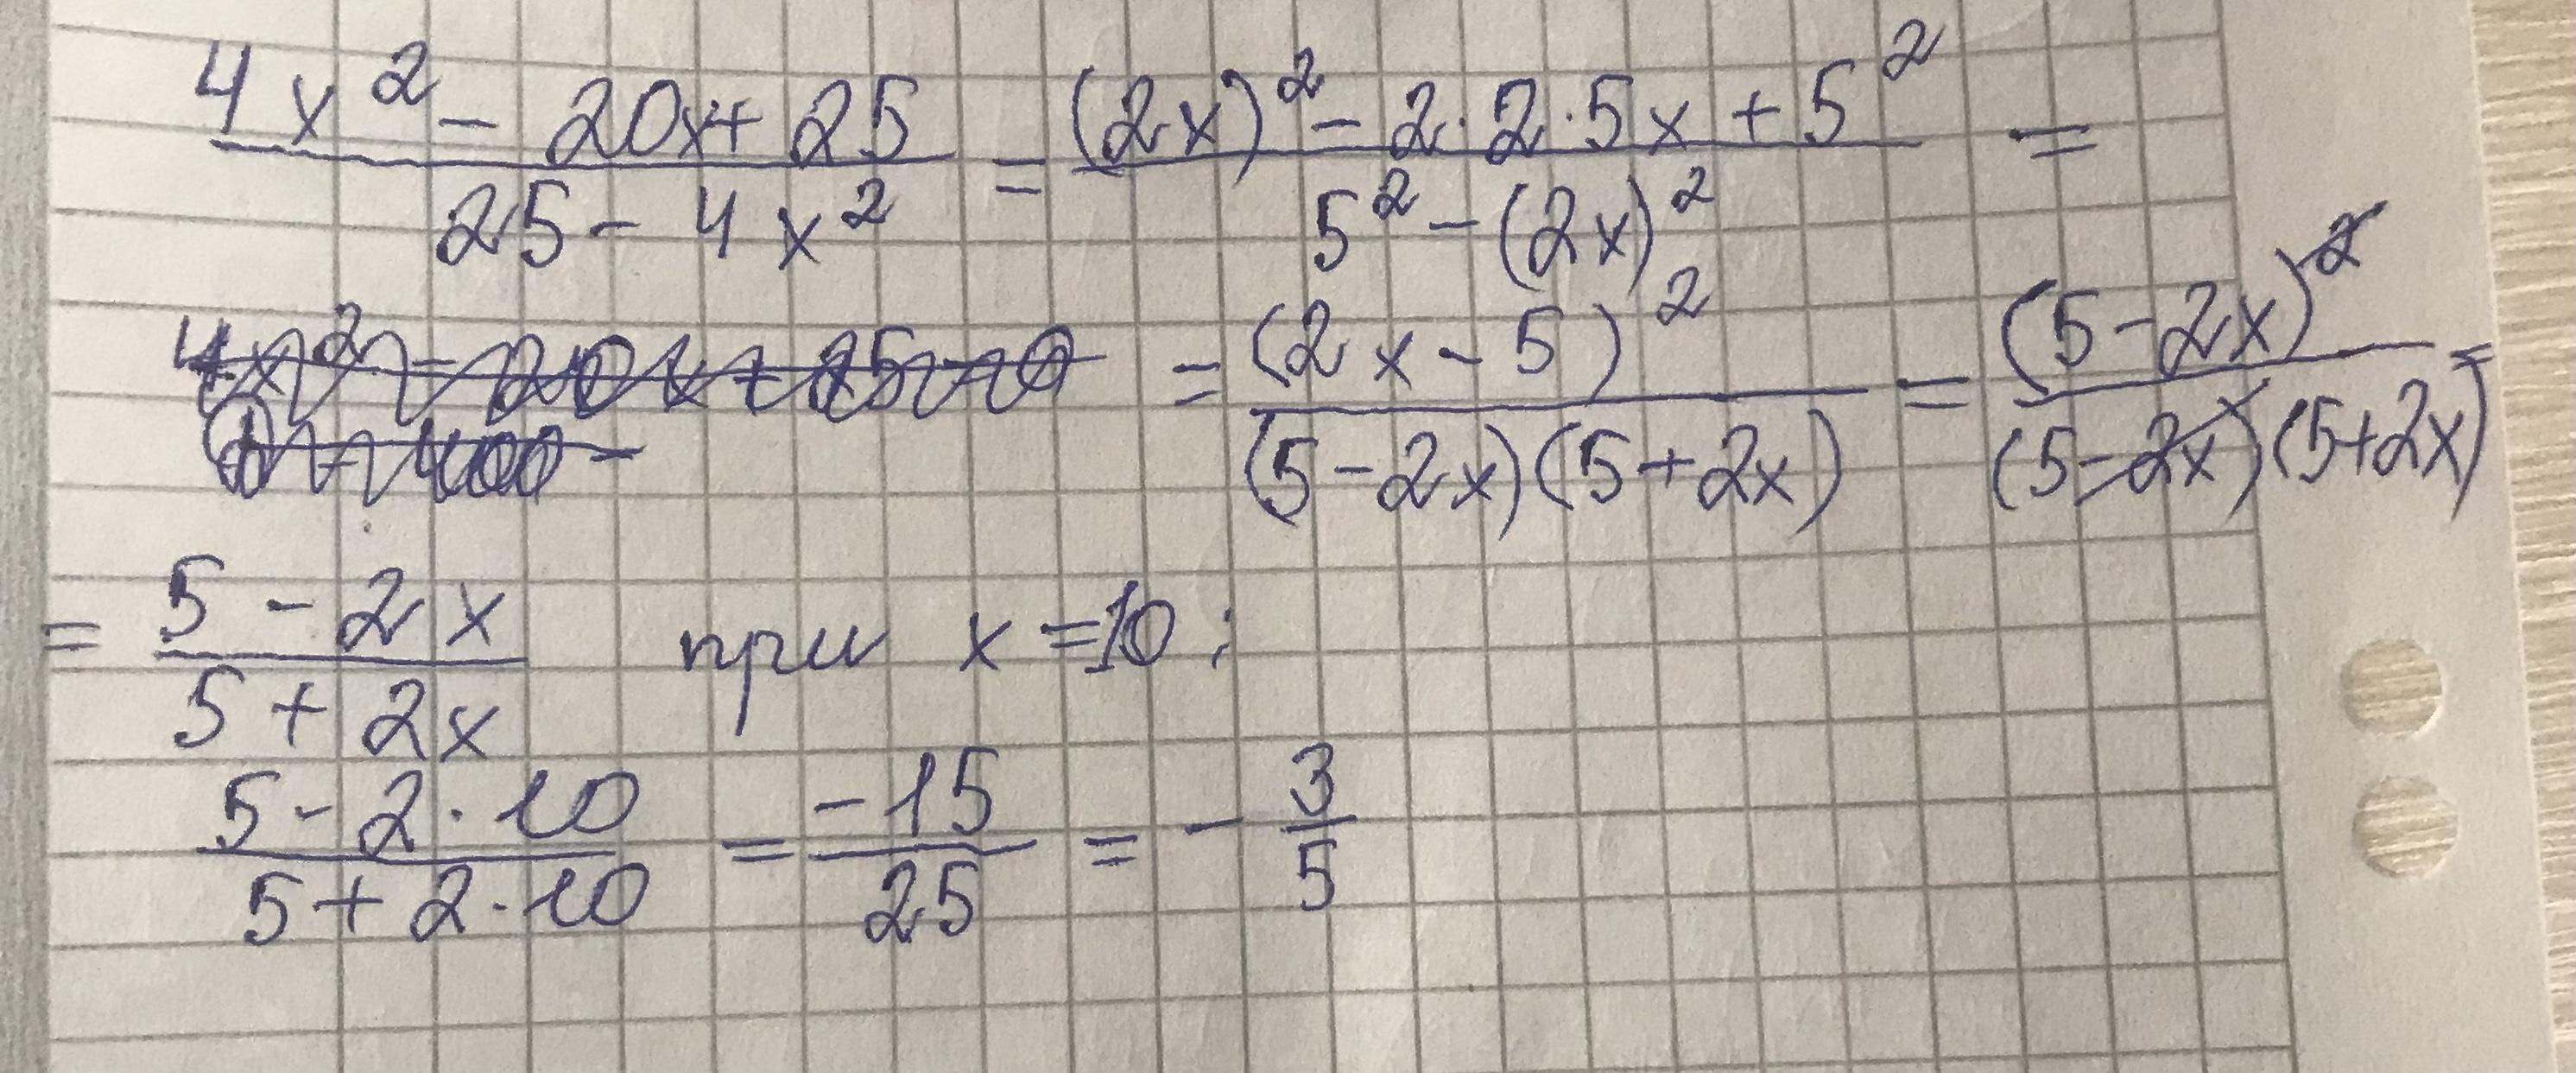 (4x² - 20x + 25)/(25 - 4x²) = ((2x)² - 2·2·5x + 5²)/(5² - (2x)²) =
4x² - 20x + 25 = 0
= (2x - 5)²/((5 - 2x)(5 + 2x)) = (5 - 2x)²/((5 - 2x)(5 + 2x)) =
= (5 - 2x)/(5 + 2x) при x = 10:
(5 - 2·10)/(5 + 2·10) = -15/25 = - 3/5